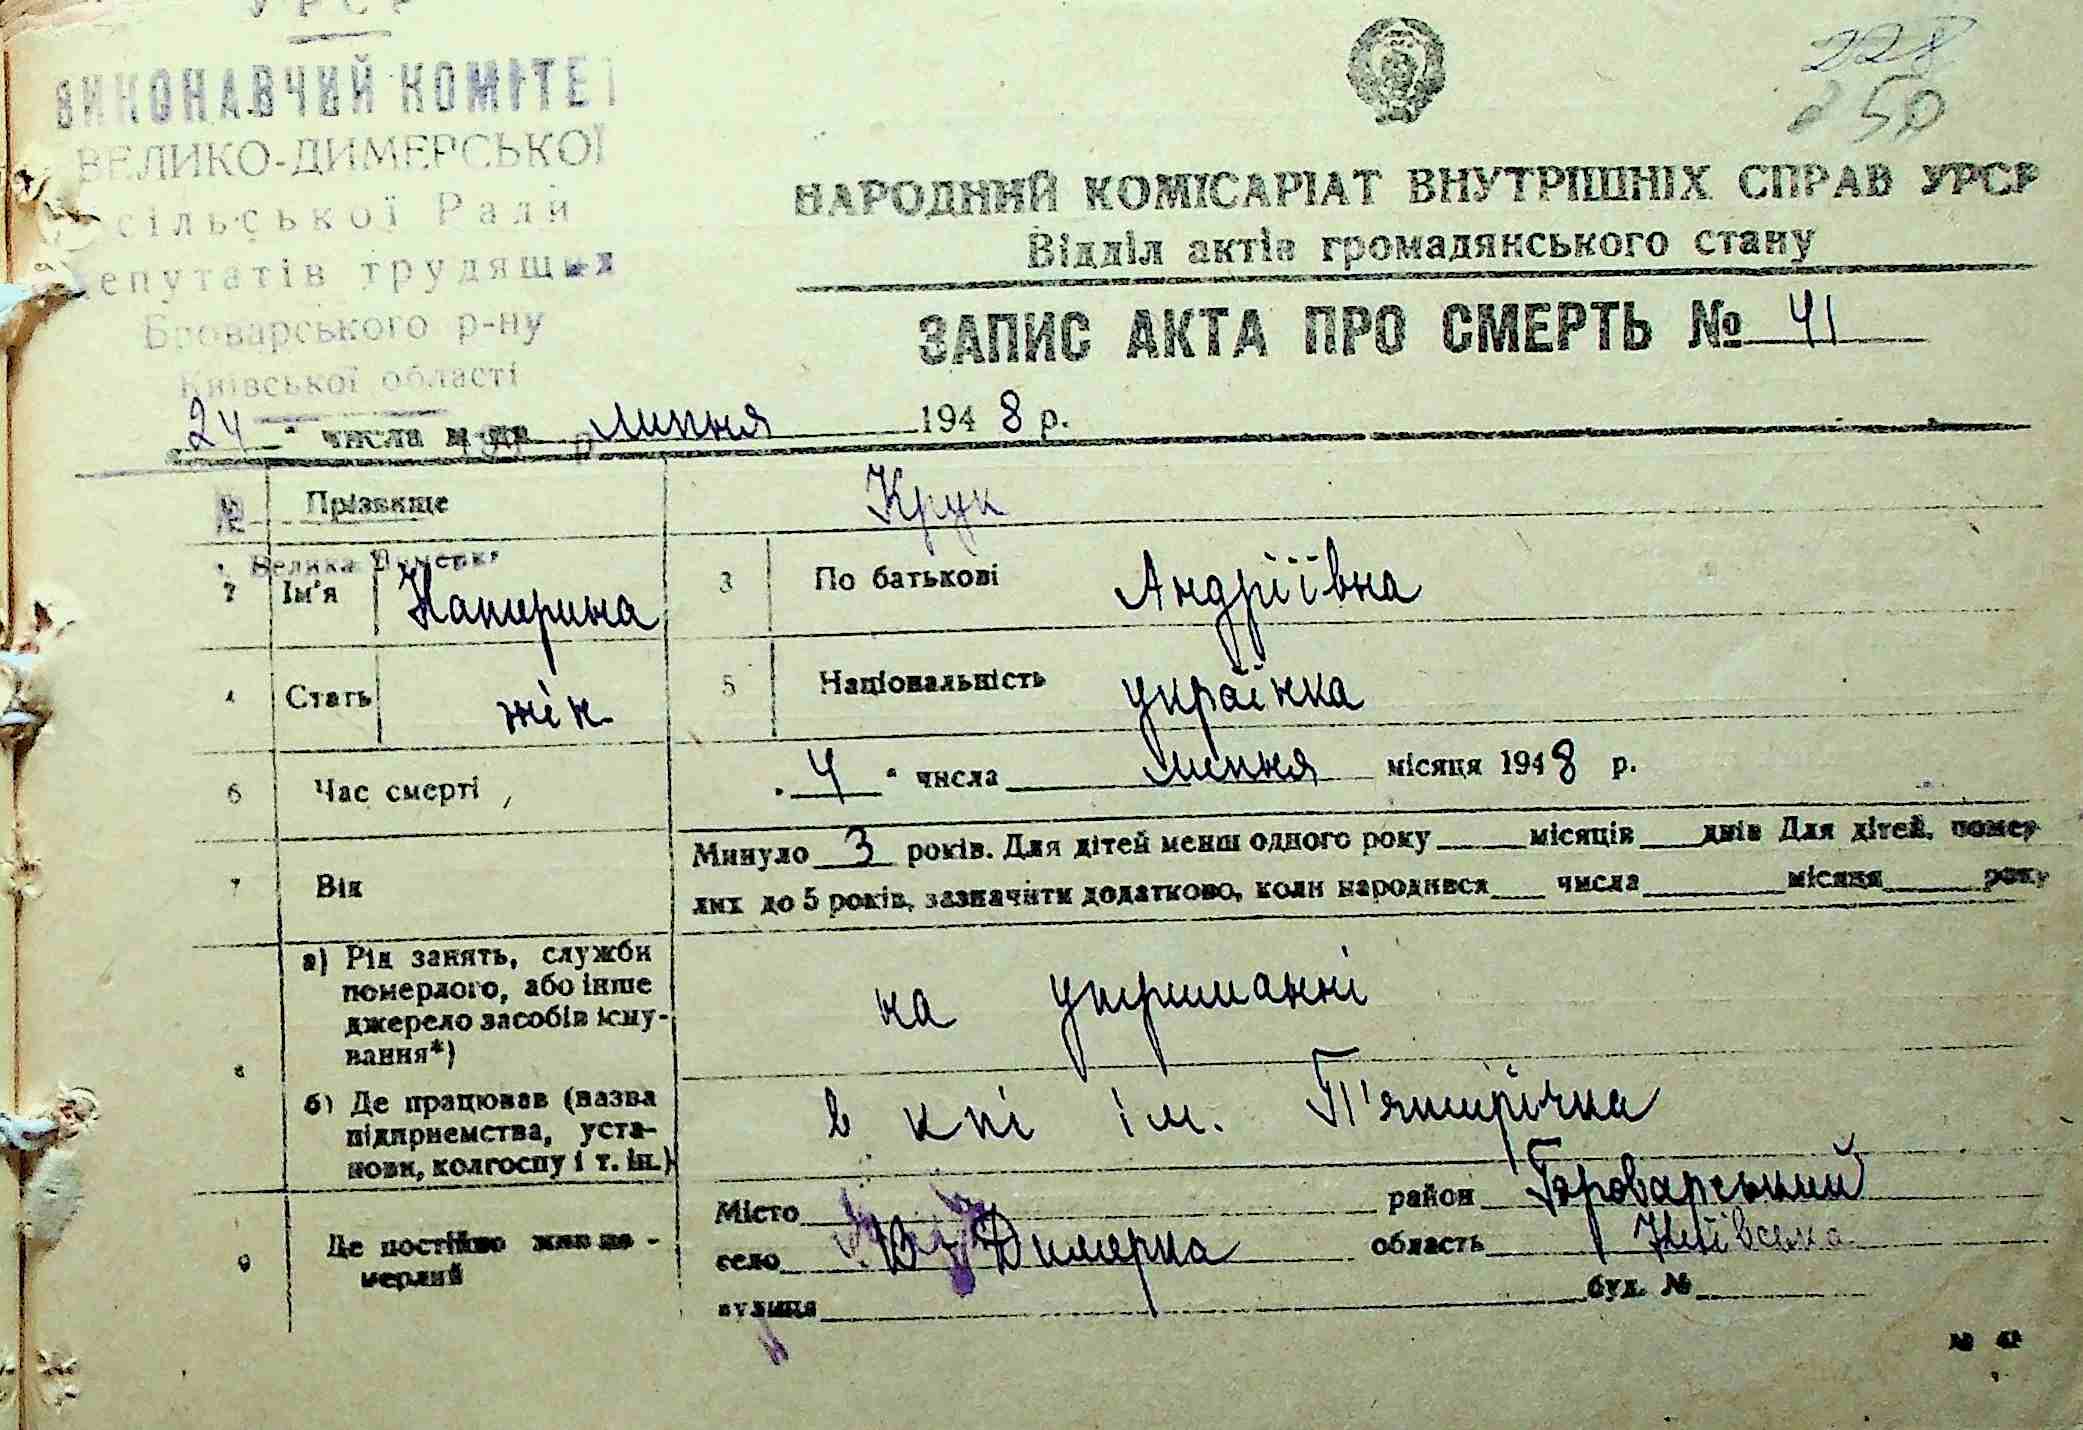 УРСР
ВИКОНАВЧИЙ КОМІТЕТ
ВЕЛИКО-ДИМЕРСЬКОЇ
сільської Ради
депутатів трудящих
Броварського р-ну
Київської області
228
250
НАРОДНИЙ КОМІСАРІАТ ВНУТРІШНІХ СПРАВ УРСР
Відділ актів громадянського стану
ЗАПИС АКТА ПРО СМЕРТЬ № 41
24 " числа м-ця липня 194 8 р.
№ Прізвище Крук
Велика Димерка
2 Ім'я Катерина 3 По батькові Андріївна
4 Стать жін. 5 Національність українка
6 Час смерті „ 4 " числа липня місяця 194 8 р.
7 Вік Минуло 3 років. Для дітей менш одного року місяців днів Для дітей, помер-
лих до 5 років, зазначити додатково, коли народився числа місяця року
8 а) Рід занять, служби померлого, або інше джерело засобів існу-вання*) на утриманні
б) Де працював (назва підприємства, уста-нови, колгоспу і т. ін.) в кпі ім. П'ятирічка
9 Де постійно жив по-мерлий
Місто район Броварський
село В. Димерка область Київська
вулиця буд. №